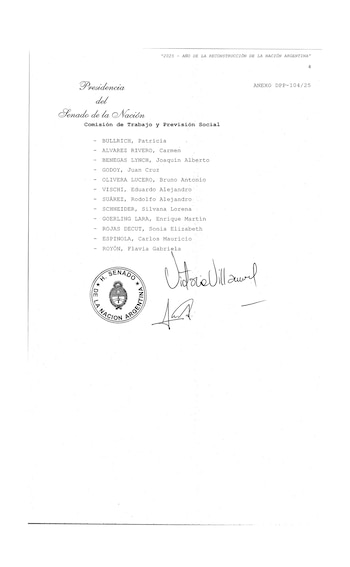 "2025 - AÑO DE LA RECONSTRUCCIÓN DE LA NACIÓN ARGENTINA"
ANEXO DPP-104/25
Presidencia
del
Senado de la Nación
Comisión de Trabajo y Previsión Social
- BULLRICH, Patricia
- ALVAREZ RIVERO, Carmen
- BENEGAS LYNCH, Joaquín Alberto
- GODOY, Juan Cruz
- OLIVERA LUCERO, Bruno Antonio
- VISCHI, Eduardo Alejandro
- SUÁREZ, Rodolfo Alejandro
- SCHNEIDER, Silvana Lorena
- GOERLING LARA, Enrique Martín
- ROJAS DECUT, Sonia Elizabeth
- ESPÍNOLA, Carlos Mauricio
- ROYÓN, Flavia Gabriela
H. SENADO
DE LA NACION ARGENTINA
Victoria Villarruel